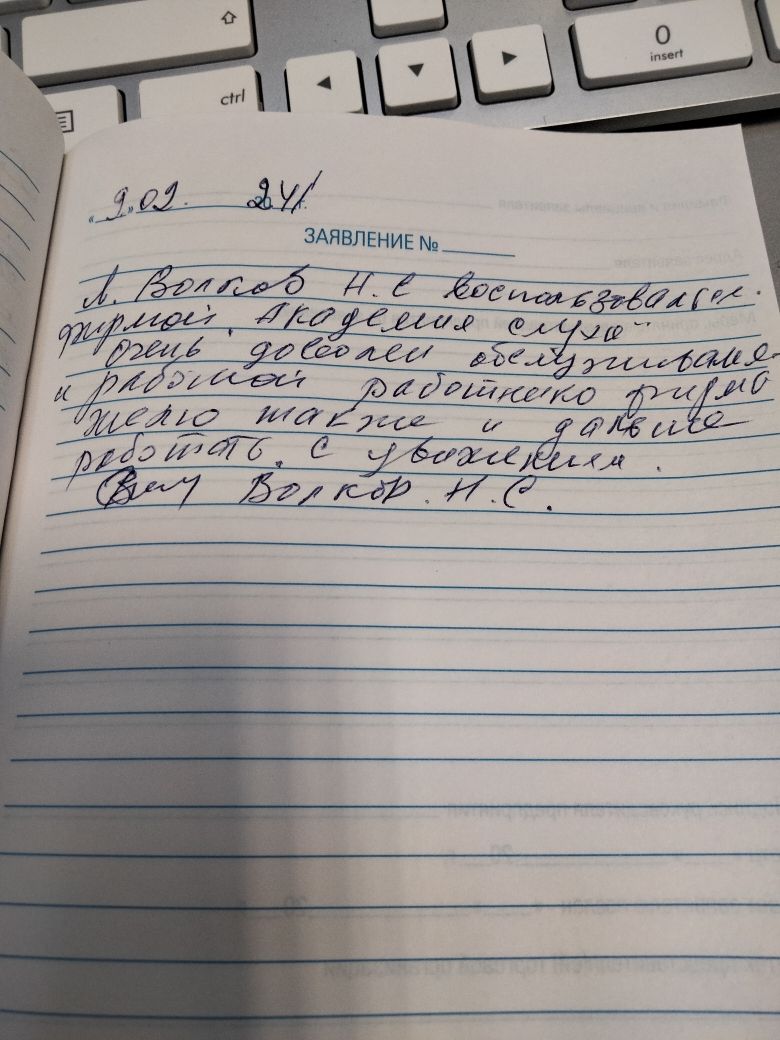 ctrl
0
insert
„ 9 „ 02. 24 г.
ЗАЯВЛЕНИЕ №
Я. Волков Н.С воспользовался.
фирмой. Академия слуха
очень доволен обслуживания
и работой работнико фирмо
желю также и дальше
работать. С уважением.
Волков. Н.С.